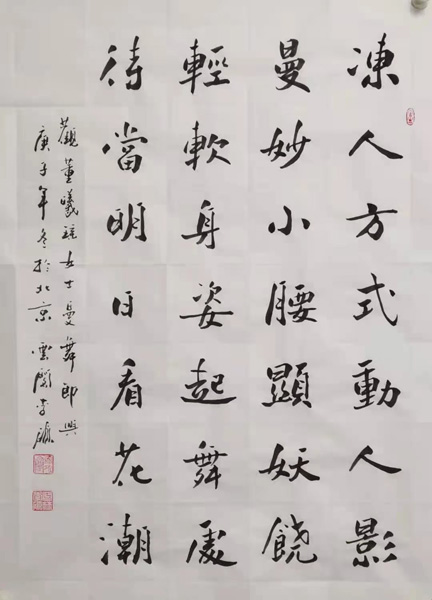 凍人方式動人影
曼妙小腰顯妖饒
輕軟身姿起舞處
待當明日看花潮
觀董曦女士曼舞即興
庚子年冬於北京雲閣李